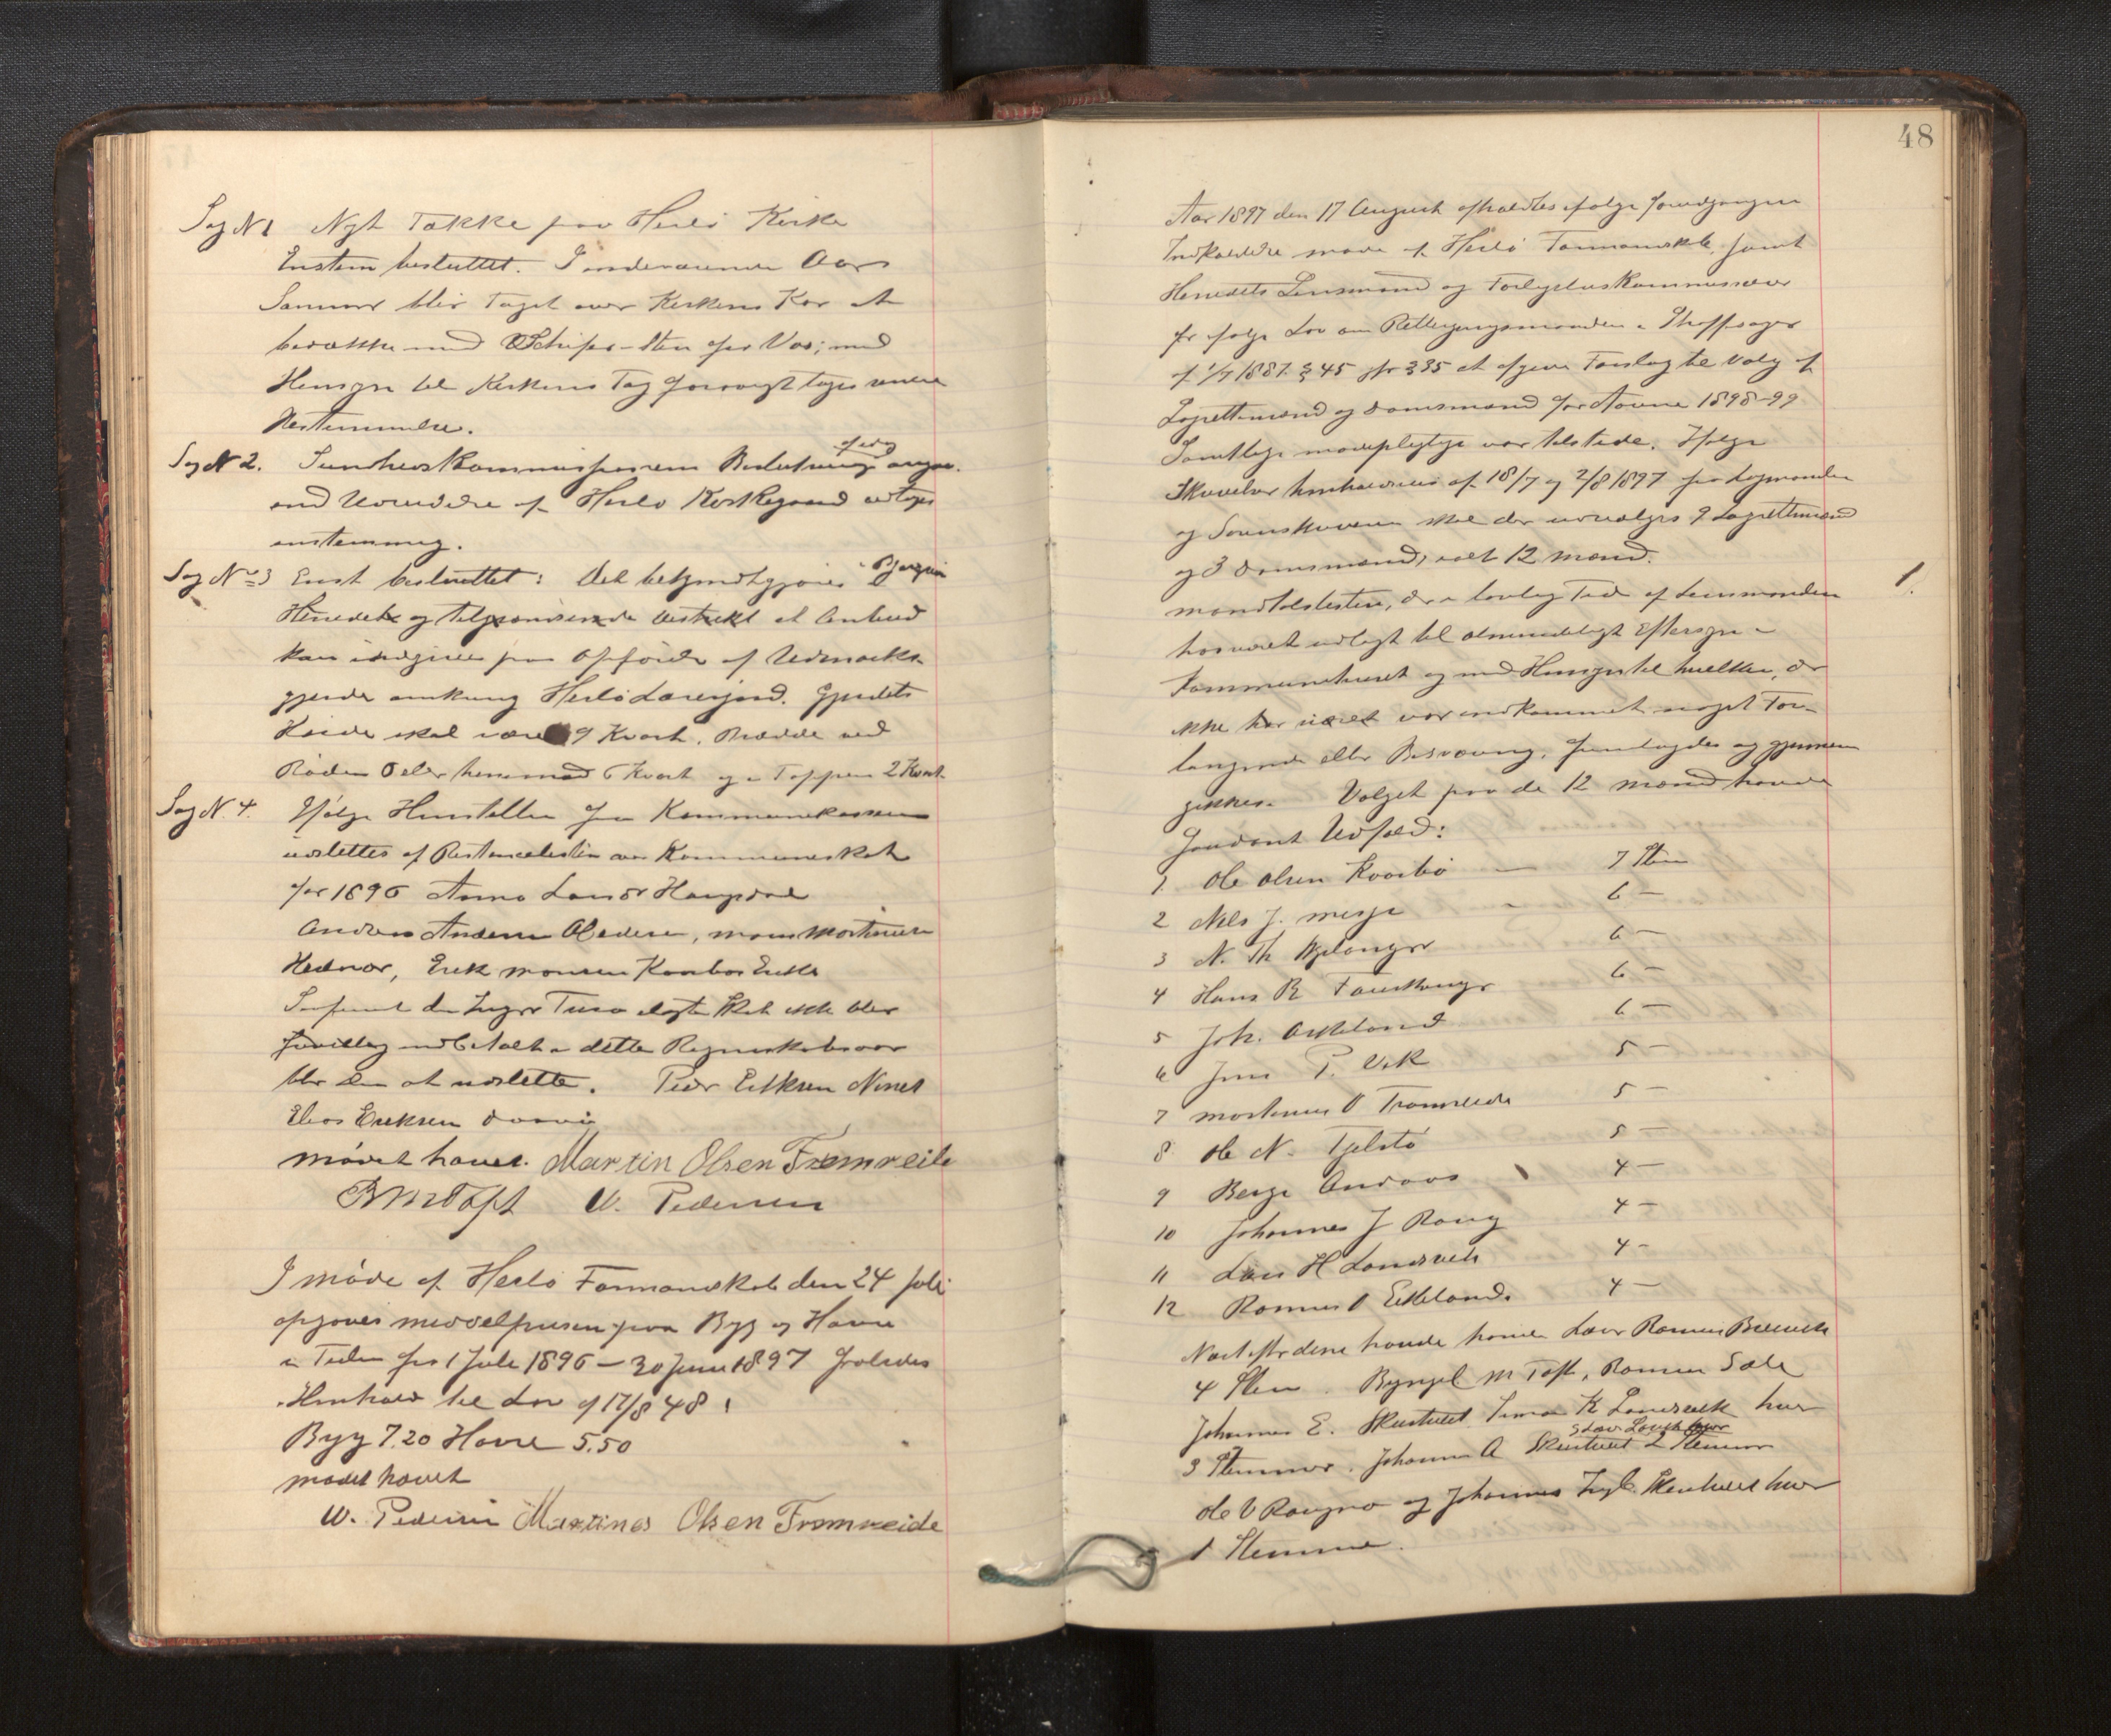 Sag N1 Nyt Tække paa Herlø Kirke
Enstem besluttet. I inderværende Aars
Sommer blir Taget over Kirkens Kor at
betække med Skifer-Sten fra Vos; med
Hensyn til Kirkens Tag forøvrigt tages senere
Bestemmelse.
Sag N 2. Sundhedskommissionens Beslutning af angaa-
end Udvidelse af Herlø Kirkegaard vedtages
enstemmig.
Sag No 3 Enst besluttet: Det bekjendtgjøres i
Herredet og tilgrænsende Distrikt at Anbud
kan indgives paa Opførelse af Udmarks-
gjerde omkring Herlø Lærerjord. Gjerdets
Høide skal være 9 Kvart. Bredde ved
Roden 6 Kvart og i Toppen 2 Kvart
Sag N. 4. Ifølge Henstillen fra Kommunekasseren
udslettes af Restancelisten over Kommuneskat
for 1896 Anna Larsdr Haugsdal
Anders Andersen, Mons Mortensen
Hednør, Erik Monsen
Inger skat ikke blir
frivillig indbetalt i dette Regnskabsaar
blir den at udslette. Peder Eriksen
Elias Eriksen
Mødet hævet. Martin Olsen Fremreide
B M Toft W. Pedersen
I møde af Herlø Formandskab den 24 Juli
opgaves middelprisen paa Byg og Havre
i Tiden fra 1 Juli 1896 – 30 Juni 1897 saaledes
i Henhold til Lov af 17/8 48:
Byg 7.20 Havre 5.50
mødet hævet
W. Pedersen Martines Olsen Fremreide
48
Aar 1897 den 17 August afholdtes ifølge foregaaende
Indkaldelse møde af Herlø Formandskab, samt
Herredets Lensmand og Forligelseskommissærer
for ifølge Lov om Rettergangsmaaden i Straffesager
af 1/7 1887 § 45 jfr § 35 at afgive Forslag til Valg af
Lagrettemænd og Domsmænd for Aarene 1898-99
Samtlige mødepligtige var tilstede. Ifølge
Skrivelser henholdsvis af 18/7 og 2/8 1897 fra Lagmanden
og Sorenskriveren skal der udvælges 9 Lagrettemænd
og 3 Domsmænd, ialt 12 Mænd.
1.
Mandtalslisten, der i lovlig Tid af Lensmanden
har været udlagt til almindeligt Eftersyn i
Kommunehuset og med Hensyn til hvilken, der
ikke har været var indkommet noget For-
langende eller Besværing, fremlagdes og gjennem
gikkes. Valget paa de 12 Mænd havde
saadant Udfald:
1. Ole Olsen Kvarbø – 7 Stem
2 Nils J. Misje - 6 –
3 N. Th Hjelanger 6 –
4 Hans R Fauskanger 6 –
5 Joh. Askeland 6 –
6 Jens P. Vik 5 –
7 Martinus O Fromreide 5 –
8 Ole N. Tjeldstø 5 –
9 Berge Andaas 4 –
10 Johannes J Rong 4 –
11 Lars H Landsvik 4 –
12 Rasmus O Eikeland. 4 –
Næst efter disse havde Lars Rasmus
4 Stem. Brynjel M Toft, Rasmus Sæle
Johannes E. Skurtveit Simon K Landsvik hver
3 Stemmer. Johannes A Skurtveit 2 Stemmer
Ole O og Johannes Ingb. Skurtveit hver
1 Stemme.